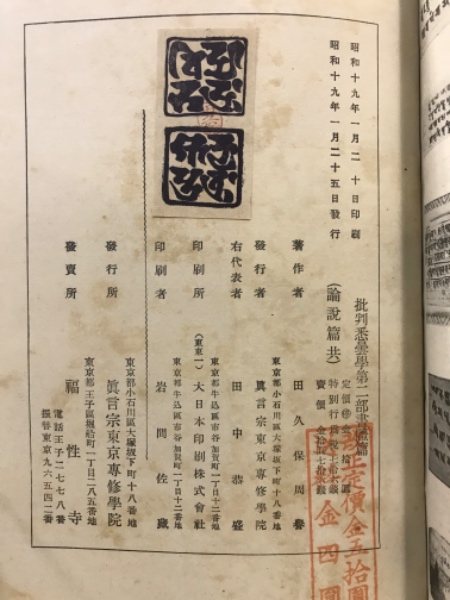 昭和十九年一月二十日印刷
昭和十九年一月二十五日發行
批判悉曇學第二部書誌篇
(論說篇共)
定價
特別行爲稅
賣價
改正定價金五拾圓
金四圓
著作者 田久保周譽
東京都小石川區大塚坂下町十八番地
發行者 眞言宗東京專修學院
右代表者 田中恭盛
東京都牛込區市谷加賀町一丁目十二番地
印刷所 (東東一) 大日本印刷株式會社
東京都牛込區市谷加賀町一丁目十二番地
印刷者 岩間佐藏
東京都小石川區大塚坂下町十八番地
發行所 眞言宗東京專修學院
東京都王子區堀船町一丁目二八五番地
發賣所 福性寺
電話王子二七七八番
振替東京九六五四二番